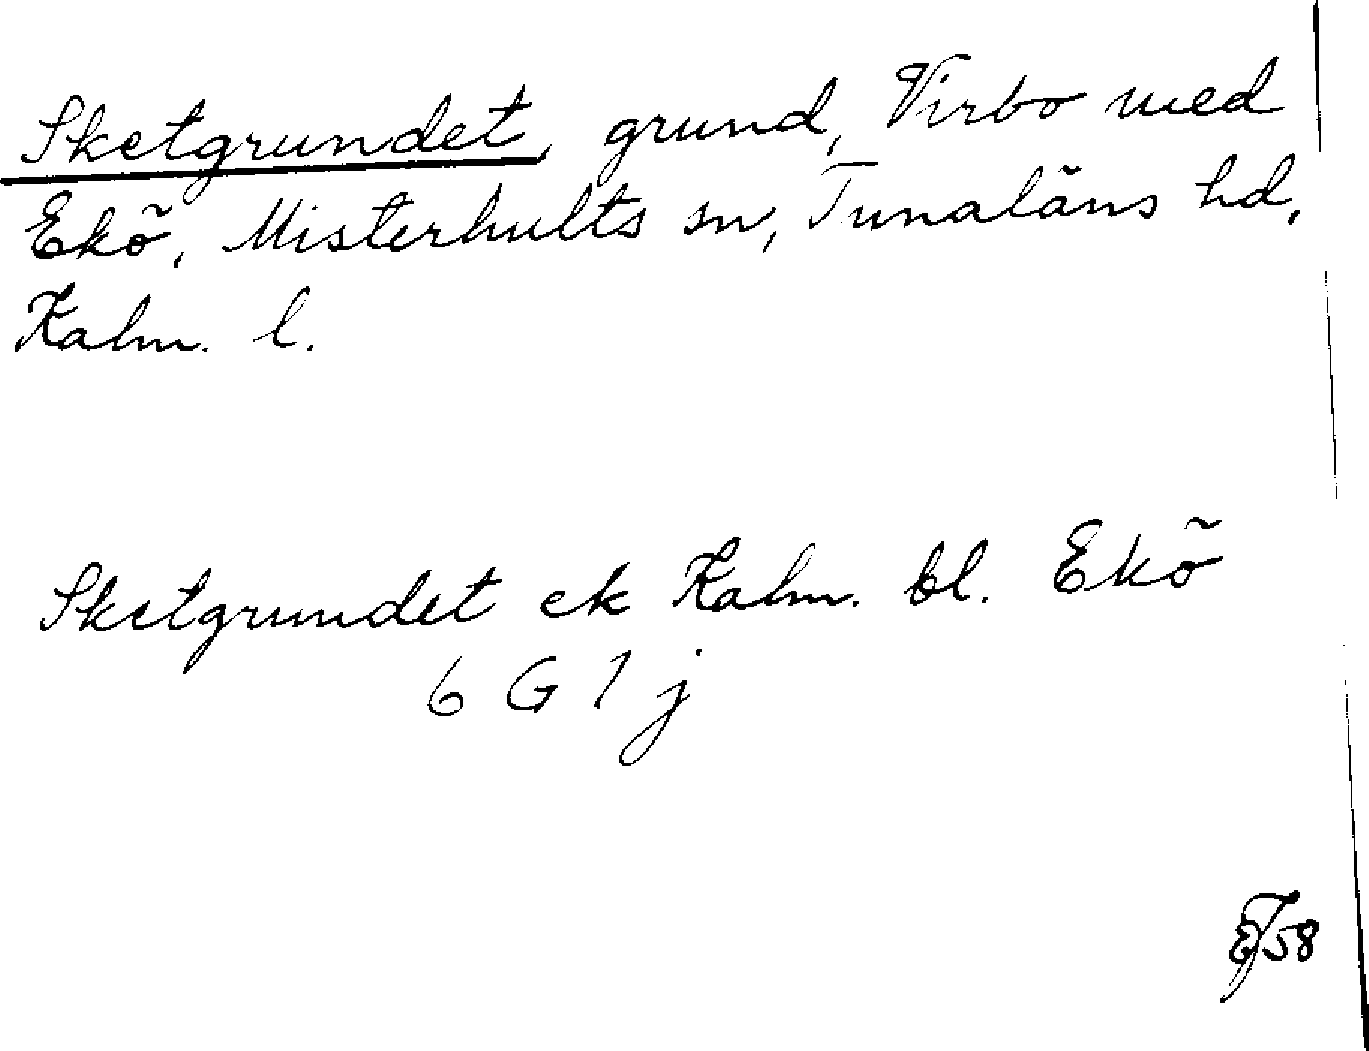 Sketgrundet, grund, Virbo med
Ekö, Misterhults sn, Tunaläns hd,
Kalm. l.
Sketgrundet ek Kalm. bl. Ekö
6 G 1 j
EJ58